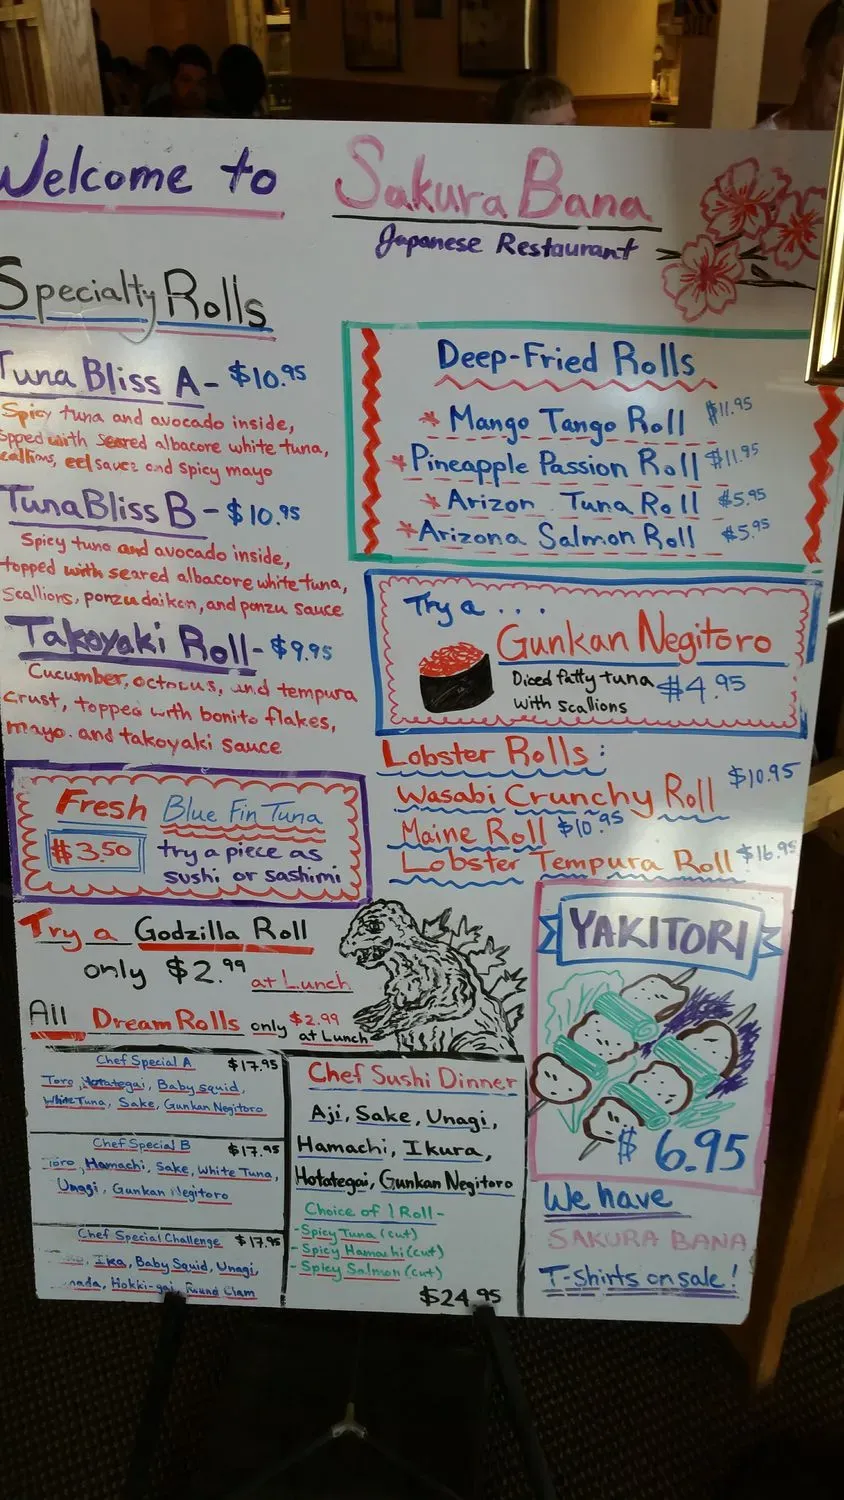 Welcome to
Sakura Bana
Japanese Restaurant
Specialty Rolls
Tuna Bliss A - $10.95
Spicy tuna and avocado inside,
topped with seared albacore white tuna,
scallions, eel sauce and spicy mayo
Tuna Bliss B - $10.95
Spicy tuna and avocado inside,
topped with seared albacore white tuna,
scallions, ponzu daikon, and ponzu sauce
Takoyaki Roll - $9.95
Cucumber, octopus, and tempura
crust, topped with bonito flakes,
mayo. and takoyaki sauce
Fresh Blue Fin Tuna
$3.50 try a piece as
sushi or sashimi
Try a Godzilla Roll
only $2.99 at Lunch
All Dream Rolls only $2.99
at Lunch
Chef Special A $17.95
Toro, Hotategai, Baby squid,
White Tuna, Sake, Gunkan Negitoro
Chef Special B $17.95
Toro, Hamachi, Sake, White Tuna,
Unagi, Gunkan Negitoro
Chef Special Challenge $17.95
Ika, Baby Squid, Unagi,
Hokki-gai, Round Clam
Chef Sushi Dinner
Aji, Sake, Unagi,
Hamachi, Ikura,
Hotategai, Gunkan Negitoro
Choice of 1 Roll-
- Spicy Tuna (cut)
- Spicy Hamachi (cut)
- Spicy Salmon (cut)
$24.95
Deep-Fried Rolls
* Mango Tango Roll $11.95
* Pineapple Passion Roll $11.95
* Arizon Tuna Roll $5.95
* Arizona Salmon Roll $5.95
Try a . . .
Gunkan Negitoro
Diced fatty tuna $4.95
with scallions
Lobster Rolls:
Wasabi Crunchy Roll $10.95
Maine Roll $10.95
Lobster Tempura Roll $16.95
YAKITORI
$6.95
We have
SAKURA BANA
T-Shirts on sale!